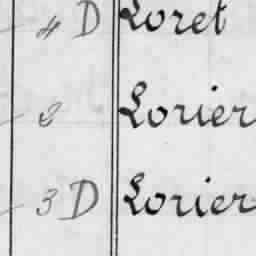 4 D Loret
2 Lorier
3 D Lorier